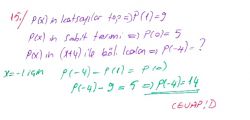 15.) P(x) in katsayılar top => P(1) = 9
P(x) in sabit terimi => P(0) = 5
P(x) in (x+4) ile böl. kalan => P(-4) = ?
x = -1 için P(-4) - P(1) = P(0)
P(-4) - 9 = 5 => P(-4) = 14
CEVAP: D